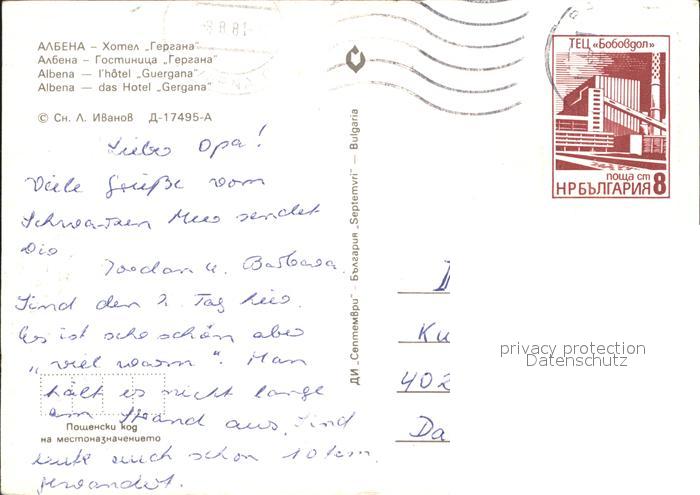 АЛБЕНА – Хотел „Гергана"
Албена – Гостиница „Гергана"
Albena — l'hôtel „Guergana"
Albena — das Hotel „Gergana"
© Сн. Л. Иванов Д-17495-А
8.8.81
ТЕЦ «Бобовдол»
поща ст
НРБЪЛГАРИЯ 8
ДИ „Септември" – България „Septemvri" – Bulgaria
Lieber Opa!
Viele Grüße vom
Schwarzen Meer sendet
Dir
Jordan u. Barbara.
Sind den 2. Tag hier.
Es ist sehr schön aber
„viel warm". Man
hält es nicht lange
am Strand aus. Sind
heute auch schon 10 km
gewandert.
Пощенски код
на местоназначението
Ku
402
Da
privacy protection
Datenschutz